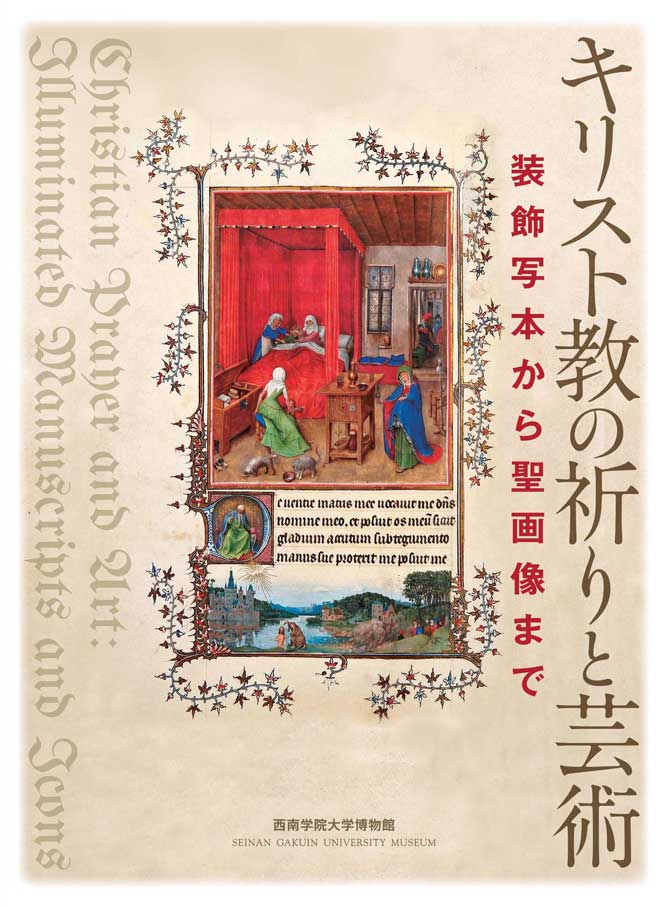 キリスト教の祈りと芸術
装飾写本から聖画像まで
Christian Prayer and Art:
Illuminated Manuscripts and Icons
e ventre matris mee vocavit me dñs
nomine meo. et posuit os meũ sicut
gladium acutum sub tegumento
manus sue protexit me posuit me
西南学院大学博物館
SEINAN GAKUIN UNIVERSITY MUSEUM